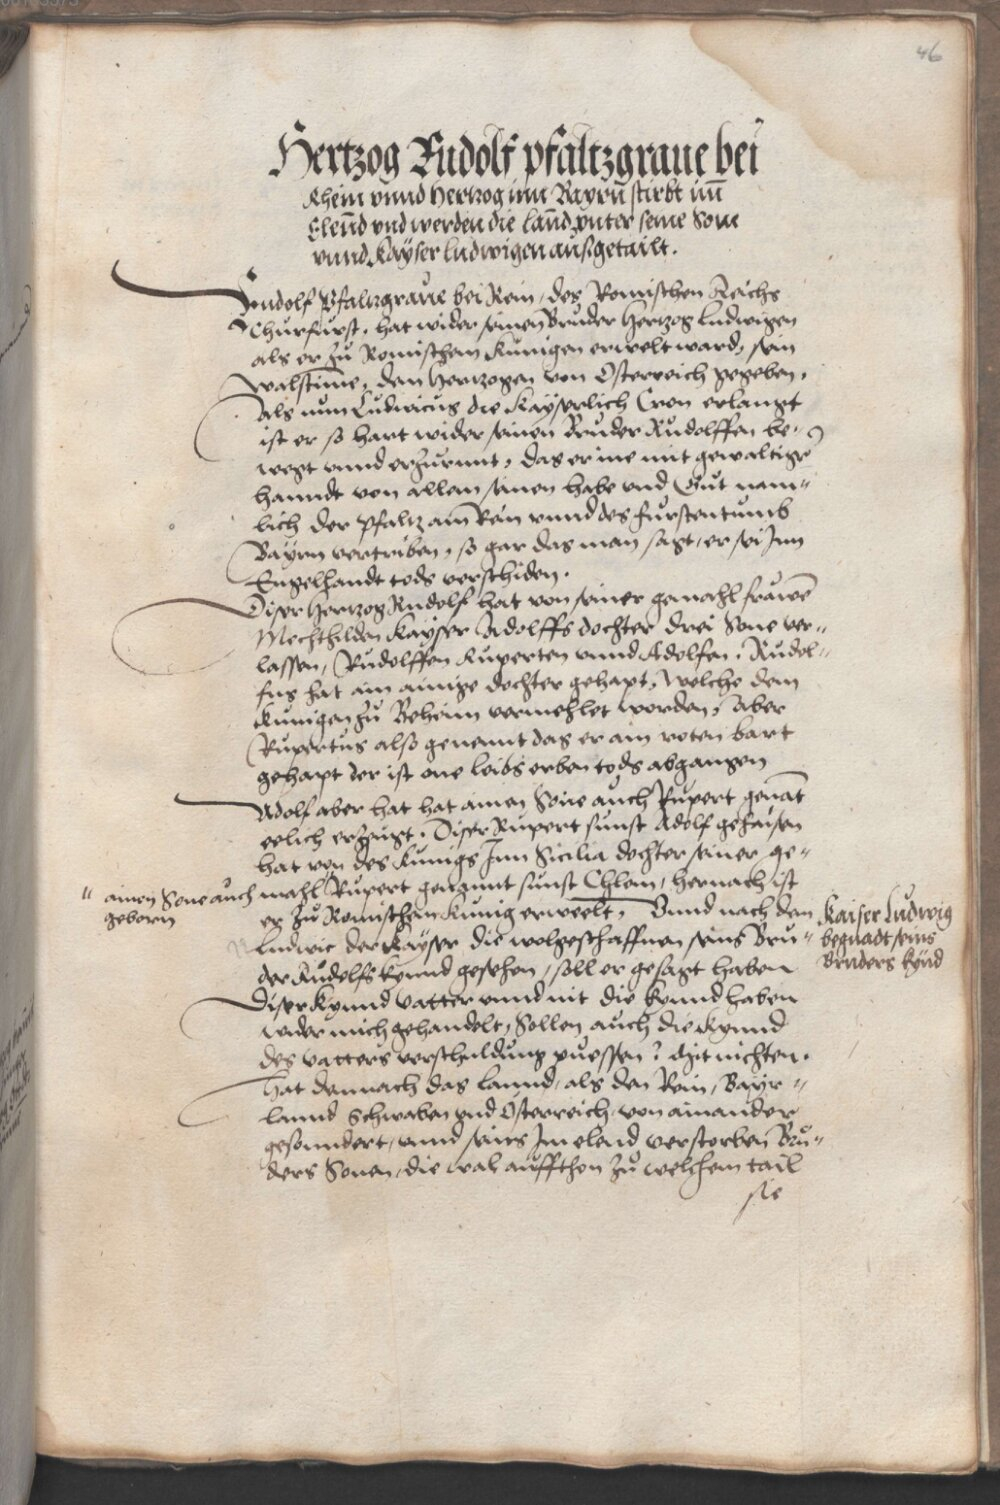 46
Hertzog Rudolf pfaltzgraue bei
Rhein vnnd Hertzog inn Bayrn̄ stirbt im̄
Elen̄d vnd werden die lan̄d vnter seine Sone
vnnd Kayser ludwigen ausgetailt.
Rudolf Pfaltzgraue bei Rein, des Romischen Reichs
Churfurst, hat wider seinen Bruder Hertzog Ludwigen
als er zu Romischem Kunigen erwelt ward, sein
walstime, den Hertzogen von Osterreich gegeben.
Als nun Ludwicus die Kayserlich Cron erlangt
ist er so hart wider seinen Bruder Rudolffen be-
wegt vnnd erzurnnt, das er ine mit gewaltiger
hanndt von allem seinen habe vnd Gut nem-
lich der Pfaltz am Rein vnnd des furstentumb
Bayrn vertriben, so gar das man sagt, er sei Inn
Engelhandt tods verschiden.
Diser Hertzog Rudolf hat von seiner gemahl frawē
Mechthilden Kayser Adolffs dochter drei Sone ver-
lassen, Rudolffen Ruperten vnnd Adolfen. Rudol-
fus hat ain ainige dochter gehapt, Welche dem
Kunigen zu Beheim vermehlet worden, Aber
Rupertus also genennt das er ain roten bart
gehapt der ist one leibs erben tods abgangen
Adolf aber hat hat ainen Sone auch Rupert genāt
eelich erzeugt. Diser Rupert sunst Adolf gehaisen
hat von des Kunigs Inn Sicilia dochter seiner ge-
" ainen Sone auch
geborn
mahl Rupert genannt sunst Chlem, hernach ist
er zu Romischen Kunig erweelt, Vnnd nach dem
Kaiser Ludwig
begnadt seins
Bruders kynd
Ludwic der Kayser die wolgeschaffnen seins Bru-
der Rudolfs kynnd gesehen, soll er gesagt haben
Diser kynnd vatter vnnd nit die kynnd haben
wider mich gehandelt, Sollen auch die kynnd
des vatters verschuldung puessen? Mit nichten.
Hat demnach das lannd, als den Rein, Bayr-
lannd Schwaben vnd Osterreich, von ainander
gesonndert, vnnd seins Im elend verstorben Bru-
ders Sonen, die wal auffthon zu welchem tail
sie